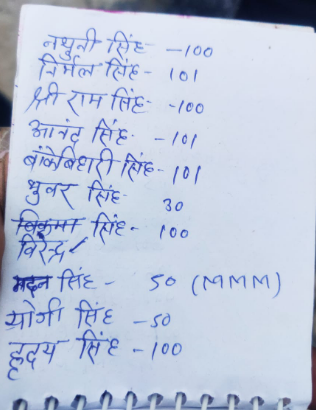 नथुनी सिंह - 100
निर्मल सिंह - 101
श्री राम सिंह - 100
आनंद सिंह - 101
बांकेबिहारी सिंह - 101
भुवर सिंह 30
बिक्रमा सिंह - 100
विरेन्द्र
मदन सिंह - 50 (MMM)
योगी सिंह - 50
हृदय सिंह - 100